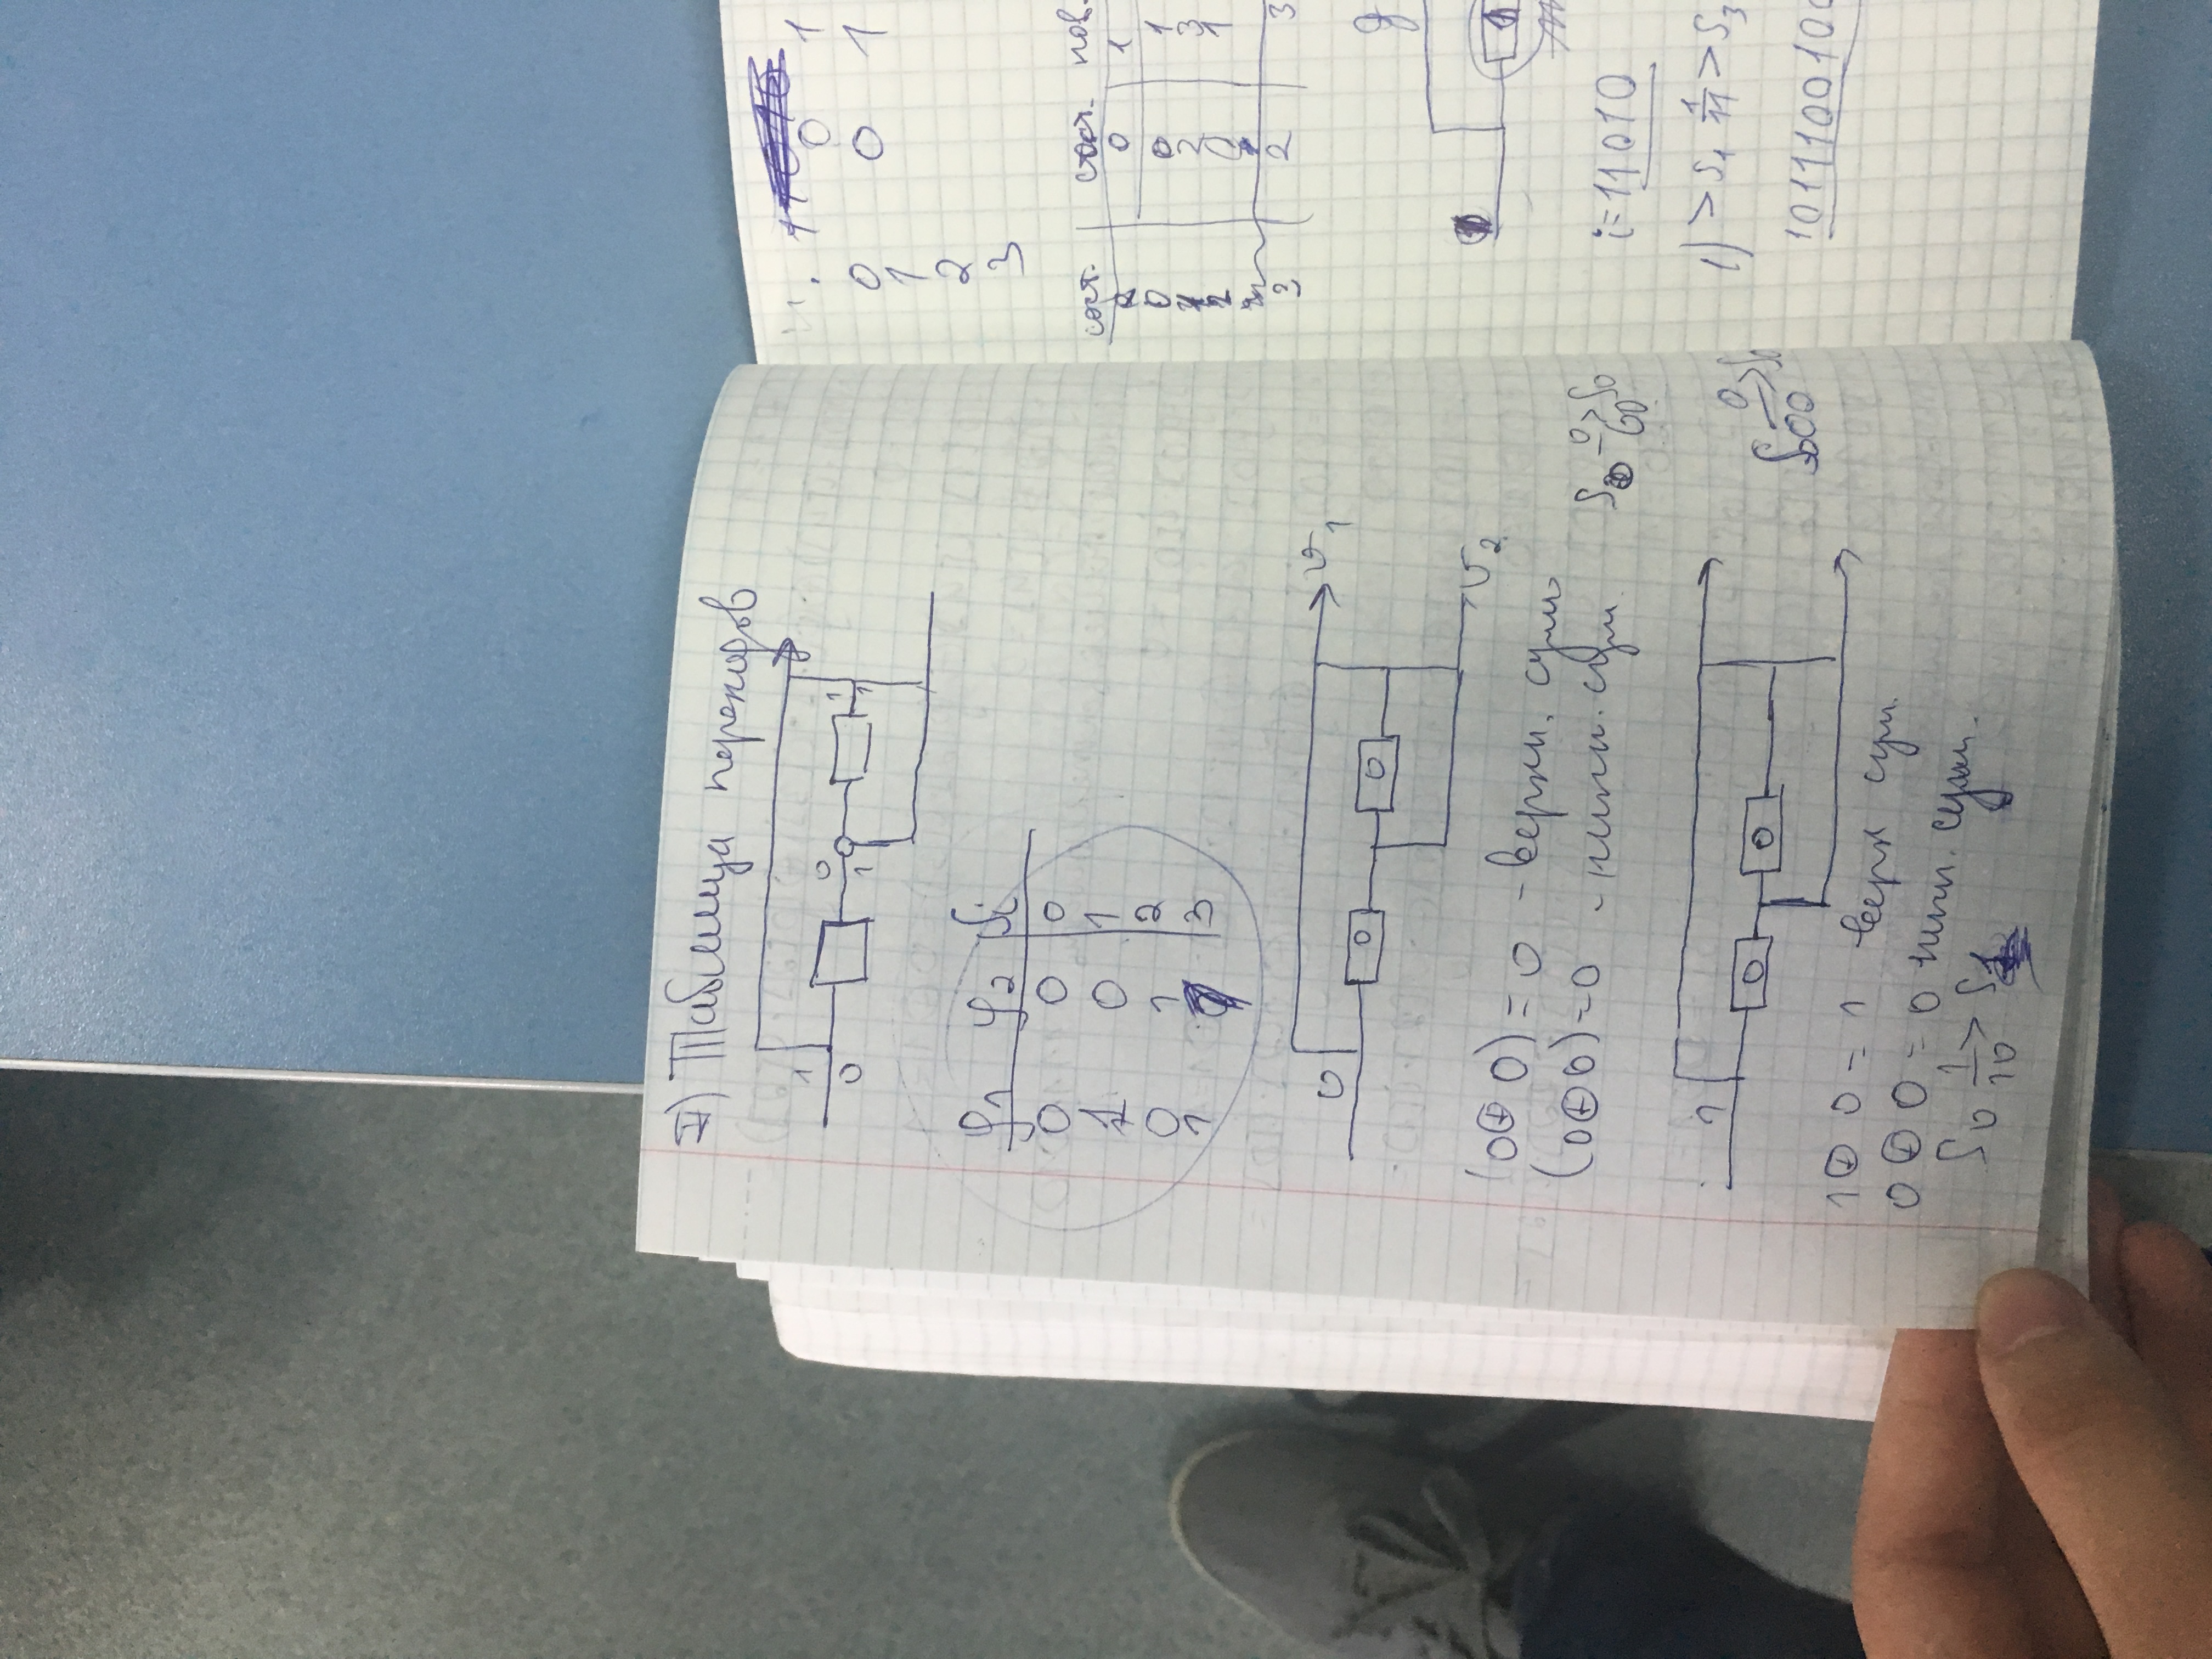 II) Таблица переходов
1
0
0
1
1
1
φ1 φ2 Si
0 0 0
1 0 1
0 1 2
1 3
0 0 0 v1
v2
(0⊕0)=0 - верхн. сум
(0⊕0)=0 - нижн. сум.
S0 0/00> S0
1 0 0
S0 0/00>
1⊕0=1 верх сум.
0⊕0=0 нижн. сумм.
S0 1/10> S1
0 1
0 0 1
1
2
3
сост. сост. нов.
0 1
0 0 1
2 3
0 1
3 2 3
g
1
i=11010
1) >S1 1/11>S3
1011100100